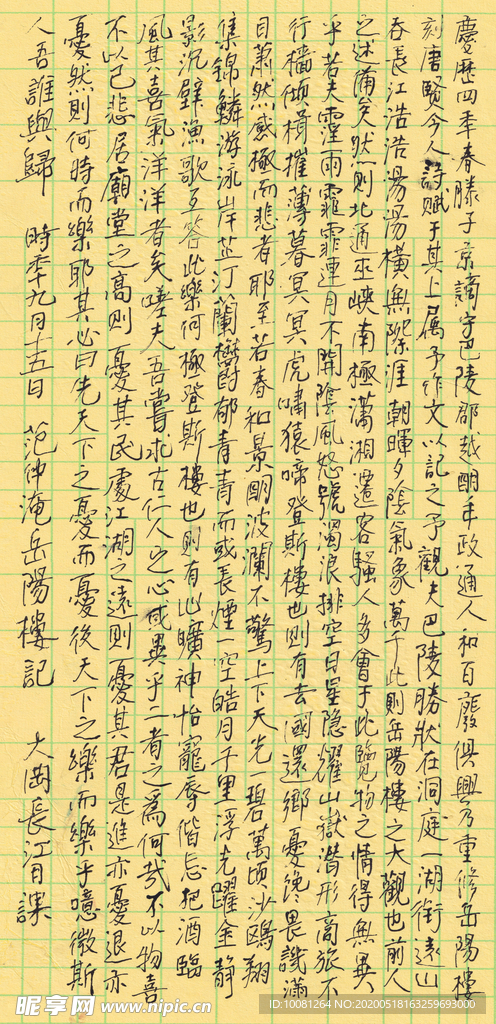 慶歷四年春滕子京謫守巴陵郡越明年政通人和百廢俱興乃重修岳陽樓
刻唐賢今人詩賦于其上屬予作文以記之予觀夫巴陵勝狀在洞庭一湖銜遠山
吞長江浩浩湯湯橫無際涯朝暉夕陰氣象萬千此則岳陽樓之大觀也前人
之述備矣然則北通巫峽南極瀟湘遷客騷人多會于此覽物之情得無異
乎若夫霪雨霏霏連月不開陰風怒號濁浪排空日星隱耀山嶽潛形商旅不
行檣傾楫摧薄暮冥冥虎嘯猿啼登斯樓也則有去國還鄉憂讒畏譏滿
目蕭然感極而悲者耶至若春和景明波瀾不驚上下天光一碧萬頃沙鷗翔
集錦鱗游泳岸芷汀蘭鬱郁青青而或長煙一空皓月千里浮光躍金靜
影沉璧漁歌互答此樂何極登斯樓也則有心曠神怡寵辱偕忘把酒臨
風其喜氣洋洋者矣嗟夫吾嘗求古仁人之心或異乎二者之為何哉不以物喜
不以己悲居廟堂之高則憂其民處江湖之遠則憂其君是進亦憂退亦
憂然則何時而樂耶其必曰先天下之憂而憂後天下之樂而樂乎噫微斯
人吾誰與歸 時年九月十五日 范仲淹岳陽樓記 大澍長江月課
昵享网 www.nipic.cn
ID:10081264 NO:20200518163259693000